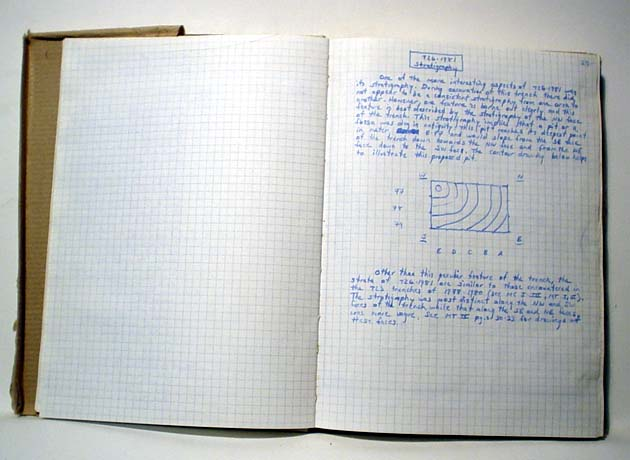 T26-1981
Stratigraphy
One of the more interesting aspects of T26-1981 was
its stratigraphy. During excavation of this trench there did
not appear to be a consistent stratigraphy from one area to
another. However, one feature is borne out clearly and this
feature is best described by the stratigraphy of the NW face
of the trench. This stratigraphy implies that a pit or a
fossa was dug in antiquity; this pit reached its deepest point
in meter E 97 and would slope from the SE face
of the trench down towards the NW face and from the NE
face down to the SW face. The contour drawing below helps
to illustrate this proposed pit.
W N
97
98
99
S E
E D C B A
Other than this peculiar feature of the trench, the
strata of T26-1981 are similar to those encountered in
the trenches of
The stratigraphy was most distinct along the NW and SW
faces of the trench while that along the SE and NE faces
was more vague. See for drawings of
these faces.